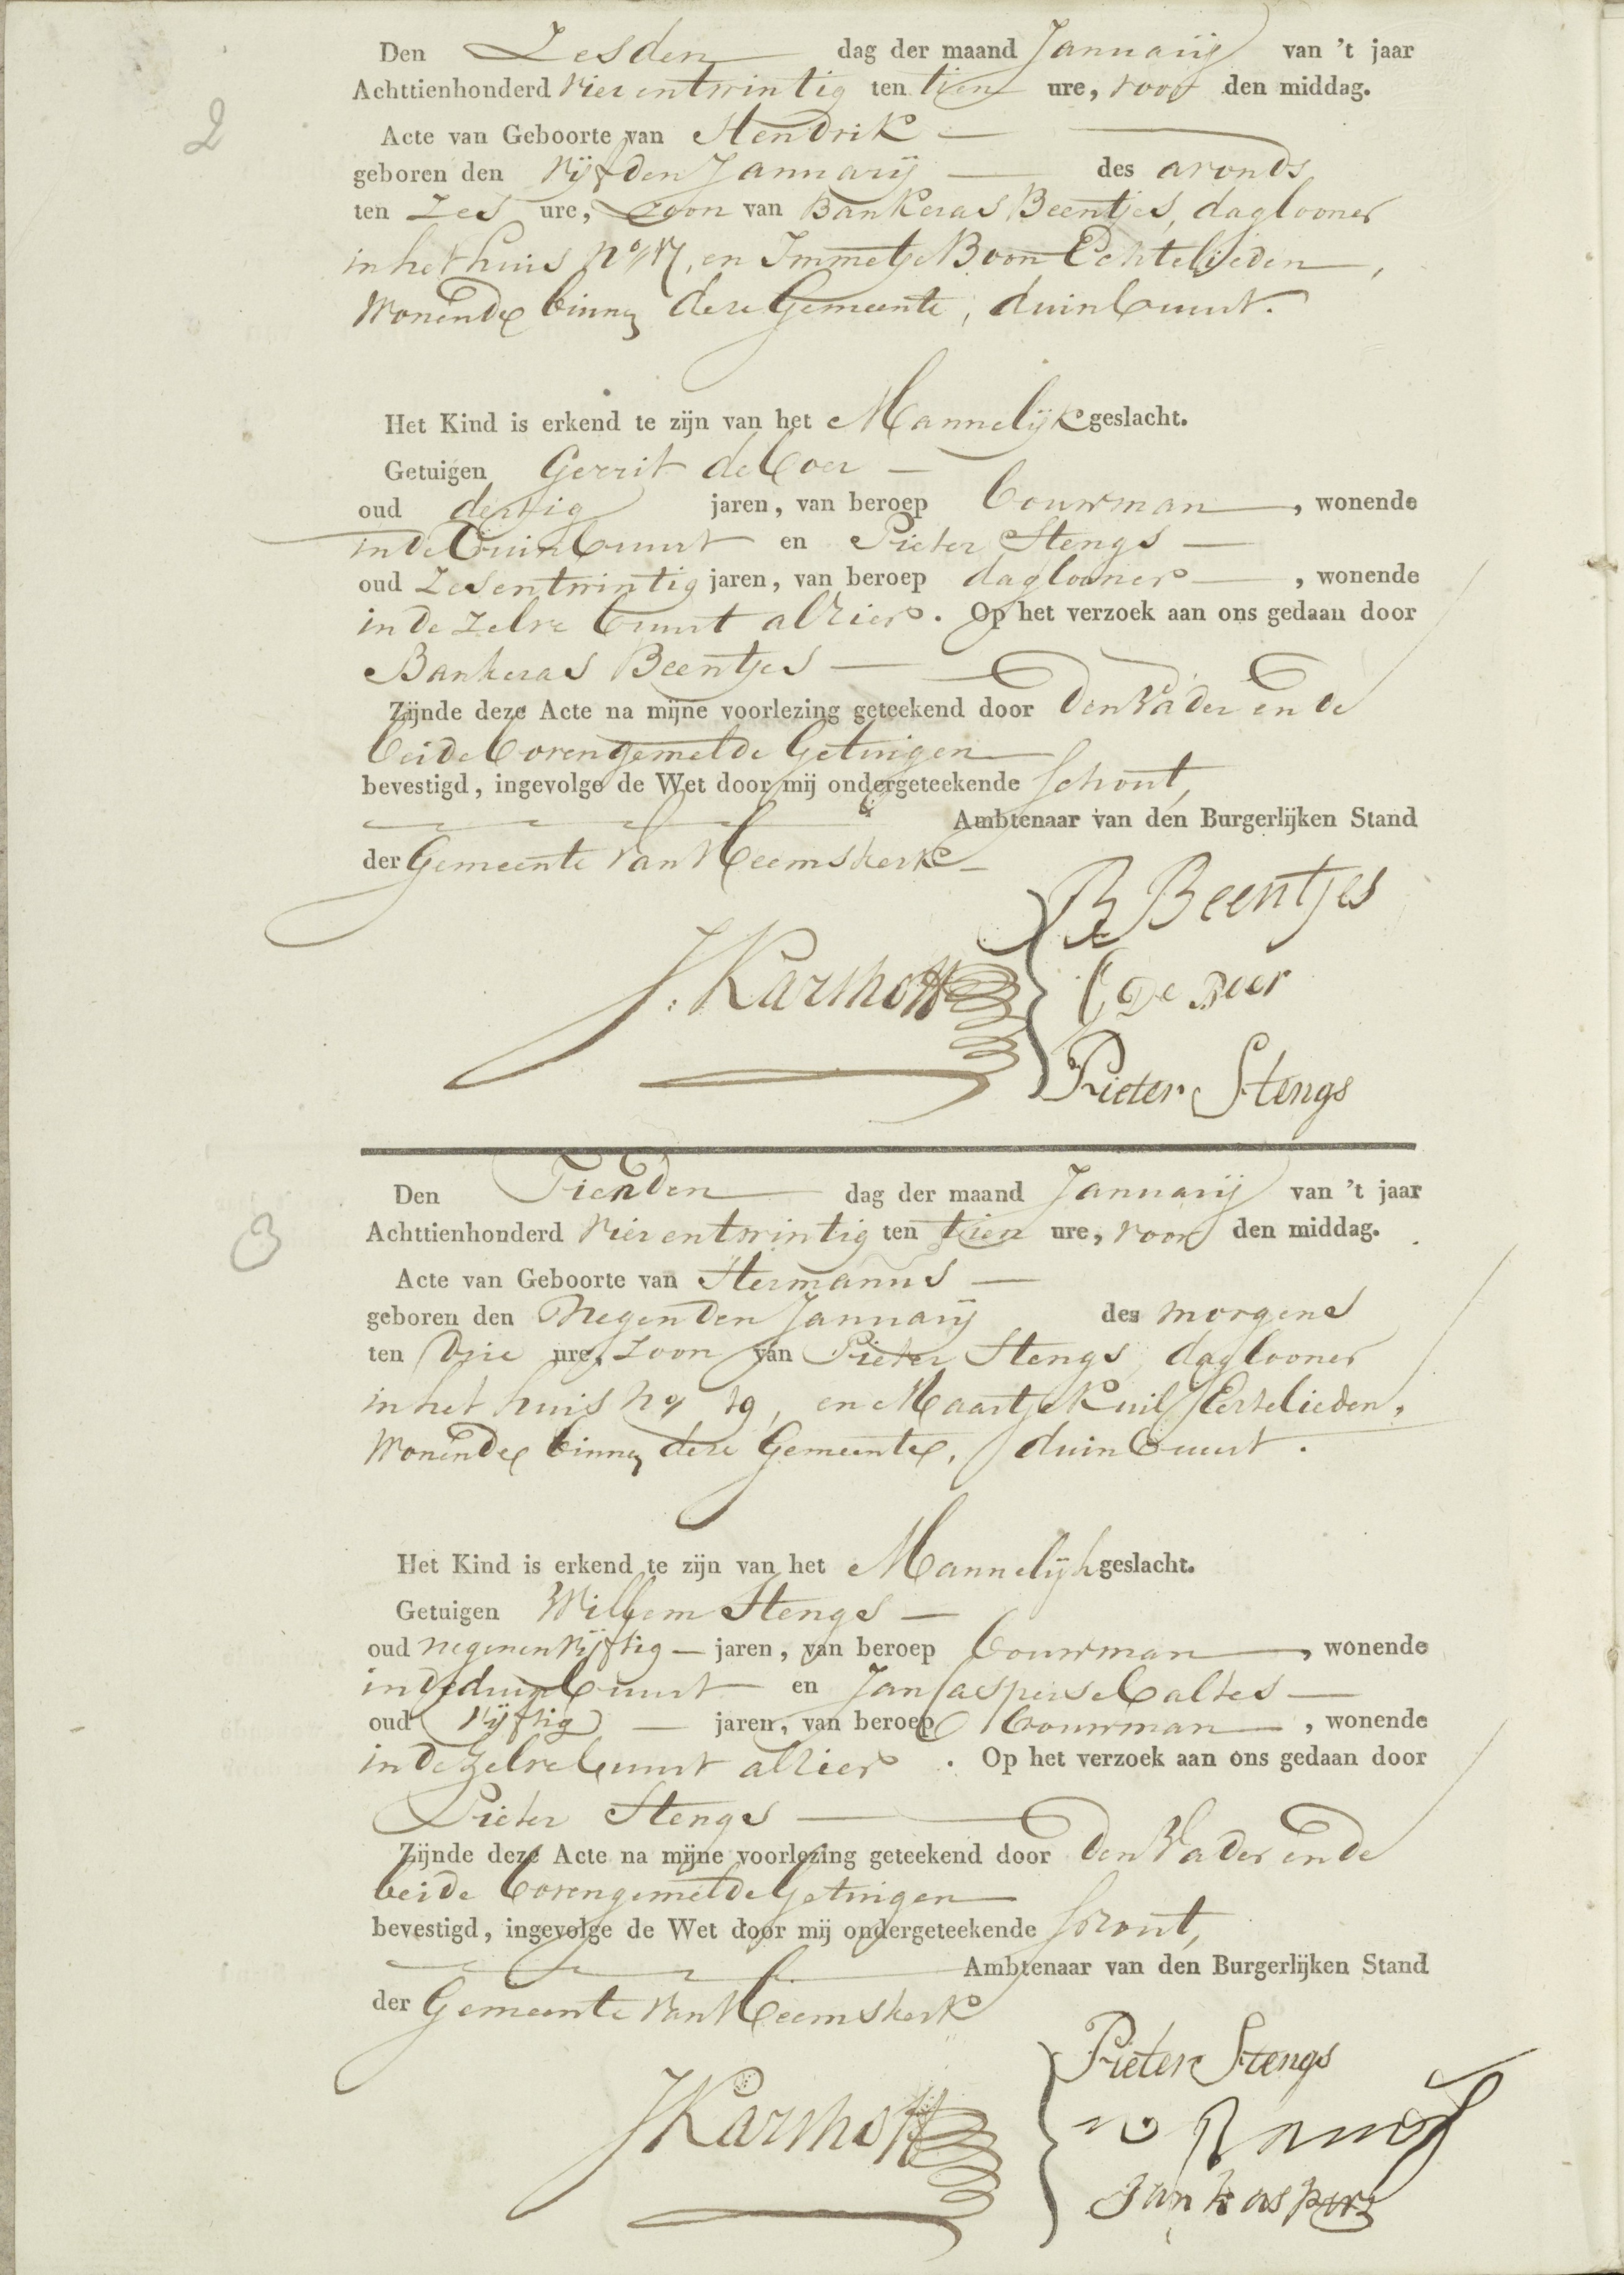 2
Den Zesden dag der maand Januarij van 't jaar
Achttienhonderd vier en twintig ten tien ure, voor den middag.
Acte van Geboorte van Hendrik
geboren den vijfden Januarij des avonds
ten zes ure, zoon van Bankeras Beentjes, daglooner
in het huis No 17, en Immetje Boon Echtelieden,
wonende binnen deze Gemeente, duinbuurt.
Het Kind is erkend te zijn van het Mannelijk geslacht.
Getuigen Gerrit de Boer
oud dertig jaren, van beroep bouwman, wonende
in de Duinbuurt en Pieter Stengs
oud zesentwintig jaren, van beroep daglooner, wonende
in de zelve buurt alhier. Op het verzoek aan ons gedaan door
Bankeras Beentjes
Zijnde deze Acte na mijne voorlezing geteekend door den Vader en de
beide bovengemelde Getuigen
bevestigd, ingevolge de Wet door mij ondergeteekende Schout,
Ambtenaar van den Burgerlijken Stand
der Gemeente van Heemskerk
B Beentjes
J. Karshoff
G De Boer
Pieter Stengs
3
Den Tienden dag der maand Januarij van 't jaar
Achttienhonderd vier en twintig ten tien ure, voor den middag.
Acte van Geboorte van Hermanus
geboren den Negenden Januarij des morgens
ten drie ure, Zoon van Pieter Stengs daglooner
in het huis No 19, en Maartje Kuil Echtelieden,
wonende binnen deze Gemeente, duinbuurt.
Het Kind is erkend te zijn van het Mannelijk geslacht.
Getuigen Willem Stengs
oud negenenvijftig jaren, van beroep bouwman, wonende
in de duinbuurt en Jan Caspersе Baltes
oud vijftig jaren, van beroep bouwman, wonende
in de zelve buurt alhier. Op het verzoek aan ons gedaan door
Pieter Stengs
Zijnde deze Acte na mijne voorlezing geteekend door den Vader en de
beide bovengemelde Getuigen
bevestigd, ingevolge de Wet door mij ondergeteekende Schout,
Ambtenaar van den Burgerlijken Stand
der Gemeente van Heemskerk
Pieter Stengs
J Karshoff
Jan kaspers